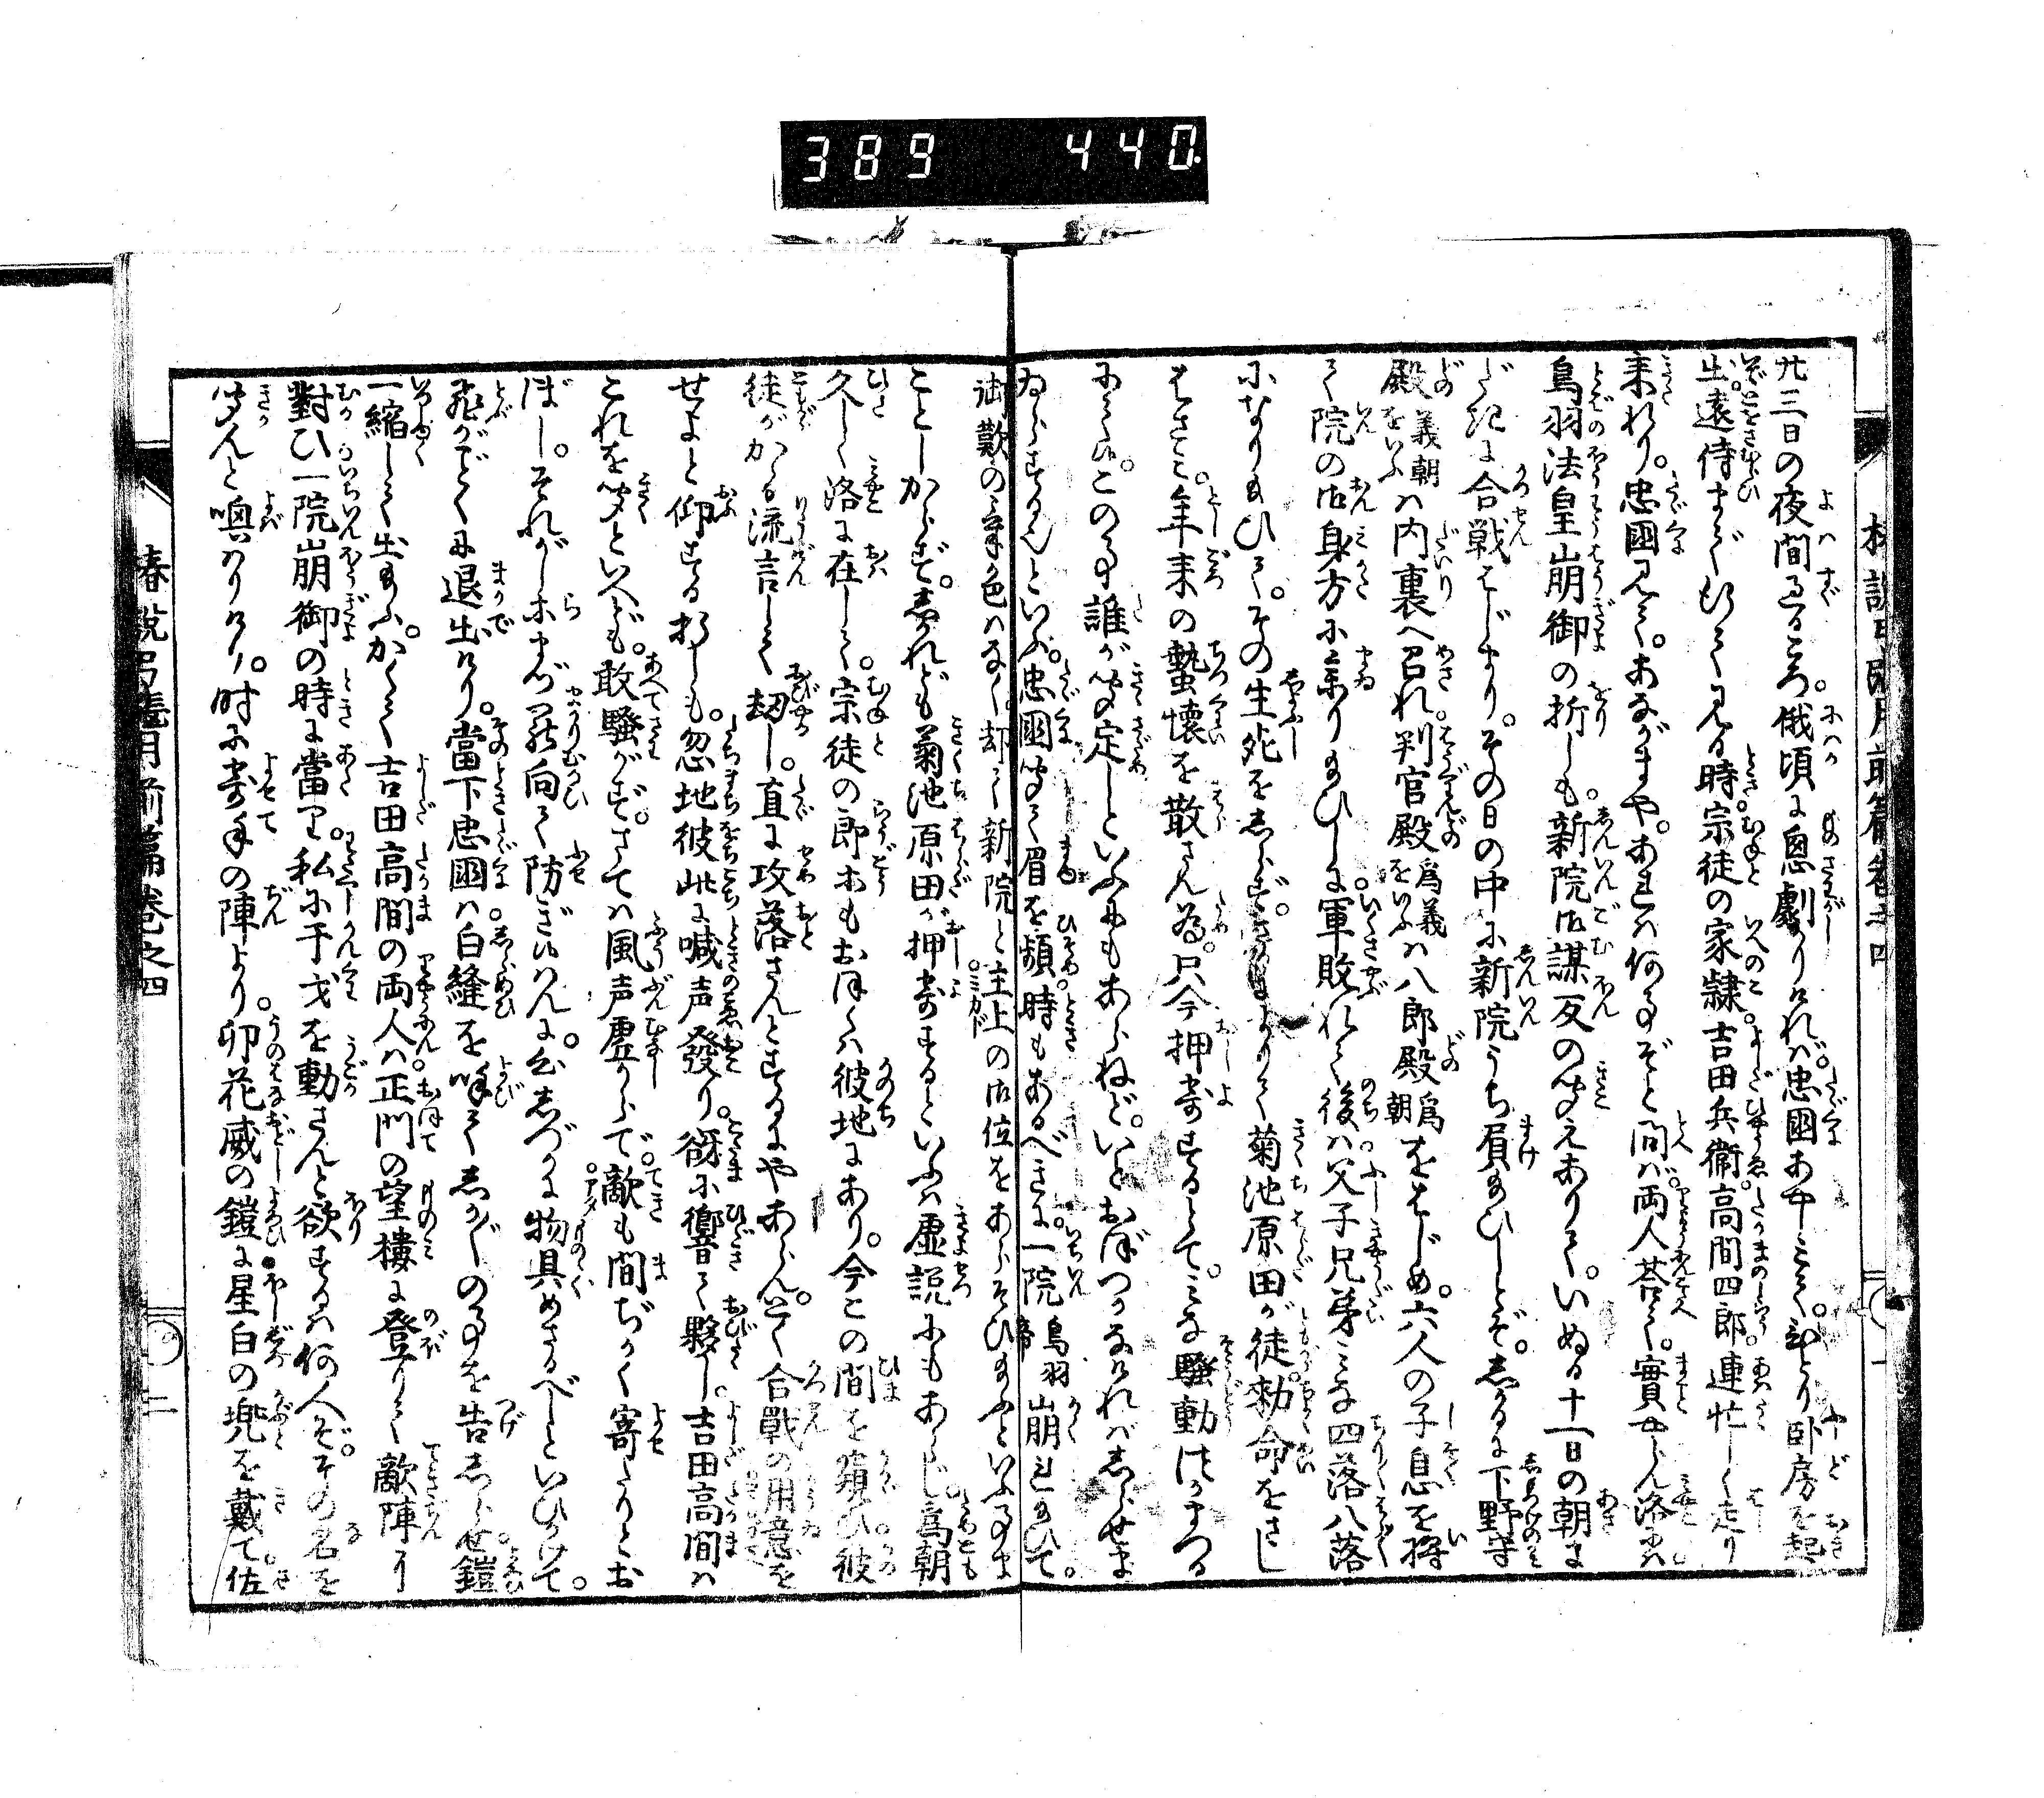 389 440
椿説弓張月前篇巻之四
廿三日の夜間過るころ。俄頃に怱劇かりければ。忠國あやしみて。ひとり臥房を起
出。遠侍まで出て見る時。宗徒の家隸。吉田兵衞。高間四郎。連忙しく走り
来れり。忠國見て。あながまや。あれは何事ぞと問ば。両人荅て。實やらん洛には
鳥羽法皇崩御の折しも。新院御謀反の聞えありて。いぬる十一日の朝ま
だきに合戦はじまり。その日の中に新院うち負給ひしとぞ。しかるに下野守
殿義朝をいふは内裏へ召れ。判官殿爲義をいふは八郎殿爲朝をはじめ。六人の子息を将
て院の御身方に参り給ひしに。軍敗れて後は。父子兄弟みな四落八落
になり給ひて。その生死をしらず。さるによりて菊池原田が徒。勅命をさし
はさみ。年来の蟄懐を散さん為。只今押寄するとて。みな騒動
に候。この事誰が聞定しといふにもあらねど。いとおぼつかなければしらせま
ゐらするなんといふ。忠國聞て眉を顰。時もあるべきに。一院鳥羽帝崩れ給ひて。
御歎の氣色はなく。却て新院と主上の御位をあらそひ給ふといふ事ま
ことしからず。しかれども菊池原田が押寄するといふは虚説にもあらじ。爲朝
久しく洛に在して。宗徒の郎等もおほくは彼地にあり。今この間を窺ひ。彼
徒がかゝる流言して刧し。直に攻落さんとするにやあらん。とく合戰の用意を
せよと仰する折しも。忽地彼此に喊声發り。谺に響て夥し。吉田高間は
これを聞といへども。敢騒がず。さては風声虚からで。敵も間ぢかく寄たりとお
ぼし。それがし等まづ罷向て防ぎ候はんに。公しづかに物具めさるべしといひかけて。
飛がごとくに退出けり。當下忠國は白縫を呼てしか〴〵の事を告しらせ。鎧
一縮して出給ふ。かくて吉田高間の両人は。正門の望樓に登りて敵陣に
對ひ一院崩御の時に當て。私に干戈を動さんと欲するは何人ぞ。その名を
聞んと喚はりけり。时に寄手の陣より。卯花威の鎧に星白の兜を戴て。佐
椿説弓張月前篇巻之四 二